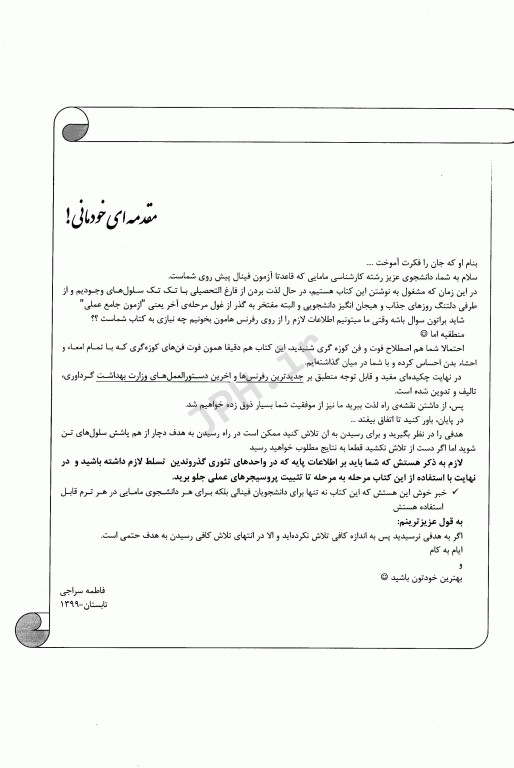 مقدمه ای خودمانی!
بنام او که جان را فکرت آموخت ...
سلام به شما، دانشجوی عزیز رشته کارشناسی مامایی که قاعدتا آزمون فینال پیش روی شماست.
در این زمان که مشغول به نوشتن این کتاب هستیم، در حال لذت بردن از فارغ التحصیلی با تک تک سلول‌های وجودیم و از
طرفی دلتنگ روزهای جذاب و هیجان انگیز دانشجویی و البته مفتخر به گذر از غول مرحله‌ی آخر یعنی "آزمون جامع عملی"
شاید براتون سوال باشه وقتی ما میتونیم اطلاعات لازم را از روی رفرنس هامون بخونیم چه نیازی به کتاب شماست ؟؟
منطقیه اما ☺
احتمالا شما هم اصطلاح فوت و فن کوزه گری شنیدید، این کتاب هم دقیقا همون فوت فن‌های کوزه‌گری که با تمام امعاء و
احشاء بدن احساس کرده و با شما در میان گذاشته‌ایم.
در نهایت چکیده‌ای مفید و قابل توجه منطبق بر جدیدترین رفرنس‌ها و آخرین دستورالعمل‌های وزارت بهداشت گردآوری،
تالیف و تدوین شده است.
پس، از داشتن نقشه‌ی راه لذت ببرید ما نیز از موفقیت شما بسیار ذوق زده خواهیم شد.
در پایان، باور کنید تا اتفاق بیفتد ...
هدفی را در نظر بگیرید و برای رسیدن به ان تلاش کنید ممکن است در راه رسیدن به هدف دچار از هم پاشش سلول‌های تن
شوید اما اگر دست از تلاش نکشید قطعا به نتایج مطلوب خواهید رسید
لازم به ذکر هستش که شما باید بر اطلاعات پایه که در واحدهای تئوری گذروندین تسلط لازم داشته باشید و در
نهایت با استفاده از این کتاب مرحله به مرحله تا تثبیت پروسیجرهای عملی جلو برید.
✓ خبر خوش این هستش که این کتاب نه تنها برای دانشجویان فینالی بلکه برای هر دانشجوی مامایی در هر ترم قابل
استفاده هستش
به قول عزیزترینم:
اگر به هدفی نرسیدید پس به اندازه کافی تلاش نکرده‌اید و الا در انتهای تلاش کافی رسیدن به هدف حتمی است.
ایام به کام
و
بهترین خودتون باشید ☺
فاطمه سراجی
تابستان-۱۳۹۹
JPH.ir